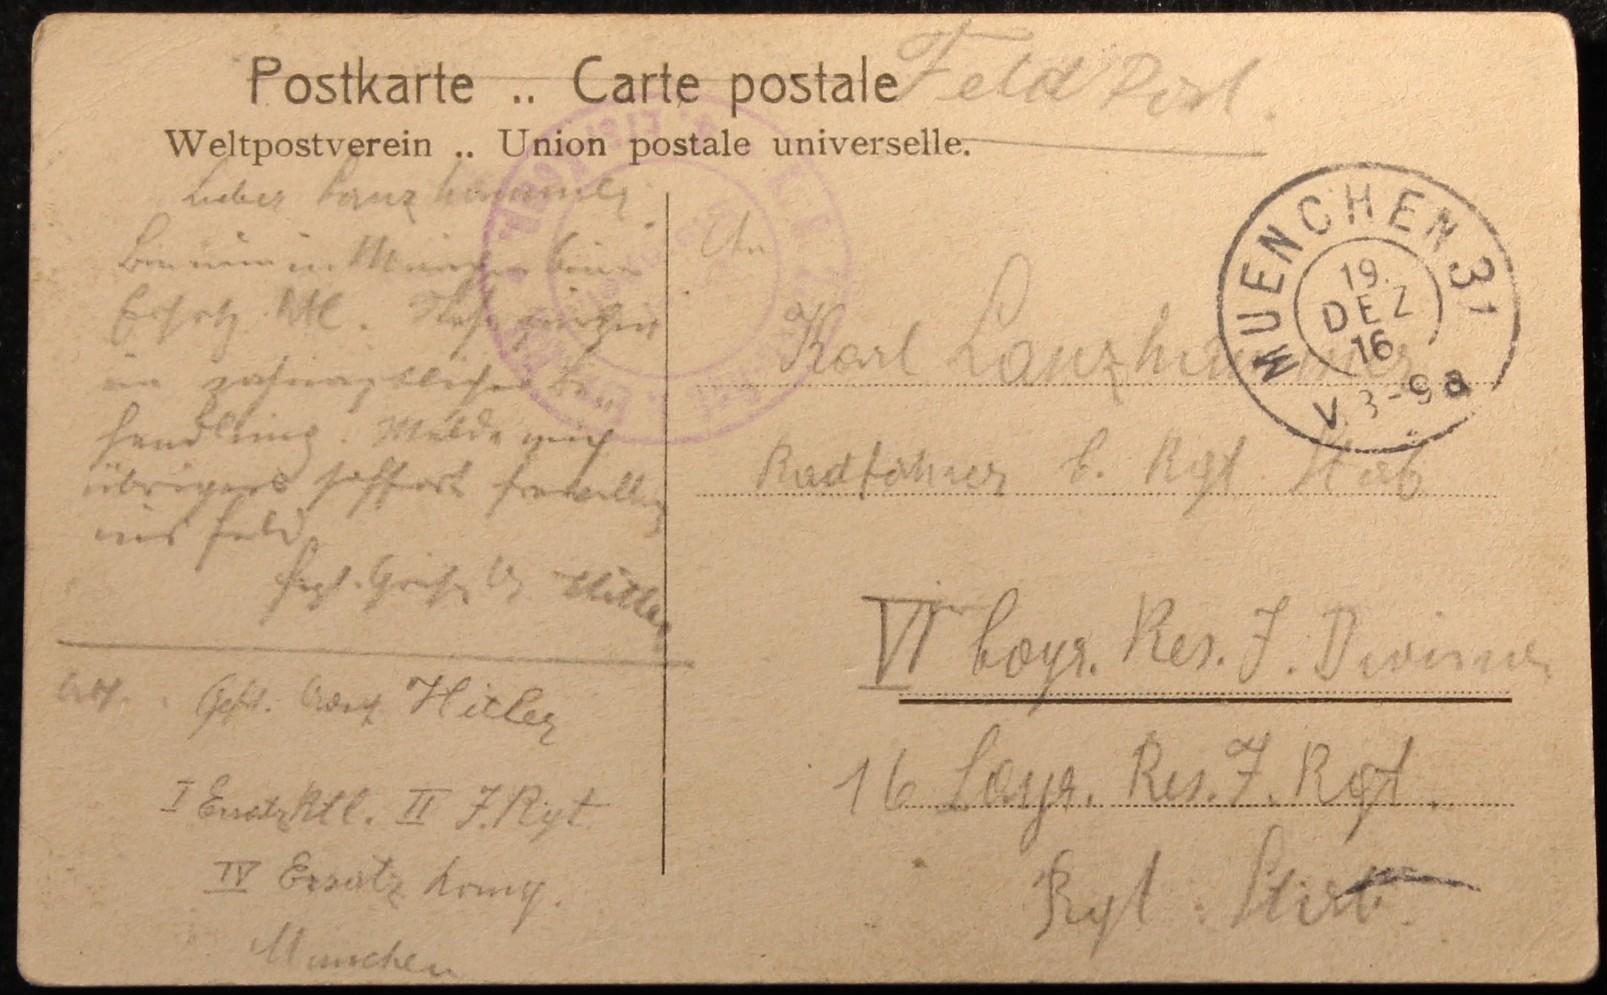 Postkarte .. Carte postale
Feldpost.
Weltpostverein .. Union postale universelle.
MUENCHEN 31
19.
DEZ
16
V 8-9 a
Lieber Lanzhammer
Bin nun in München beim
Ersatz Btl. Stehe zurzeit
in zahnärztlicher Be
handlung. Melde mich
übrigens soffort freiwillig
ins Feld
Hitler
An
Karl Lanzhammer
Radfahrer b. Rgt. Stab
VI bayr. Res. I. Division
16 bayr. Res. I. Rgt.
Rgt. Stab.
Abs. Gefr. Adolf Hitler
I Ersatz Btl. II I. Rgt.
IV Ersatz Komp.
München